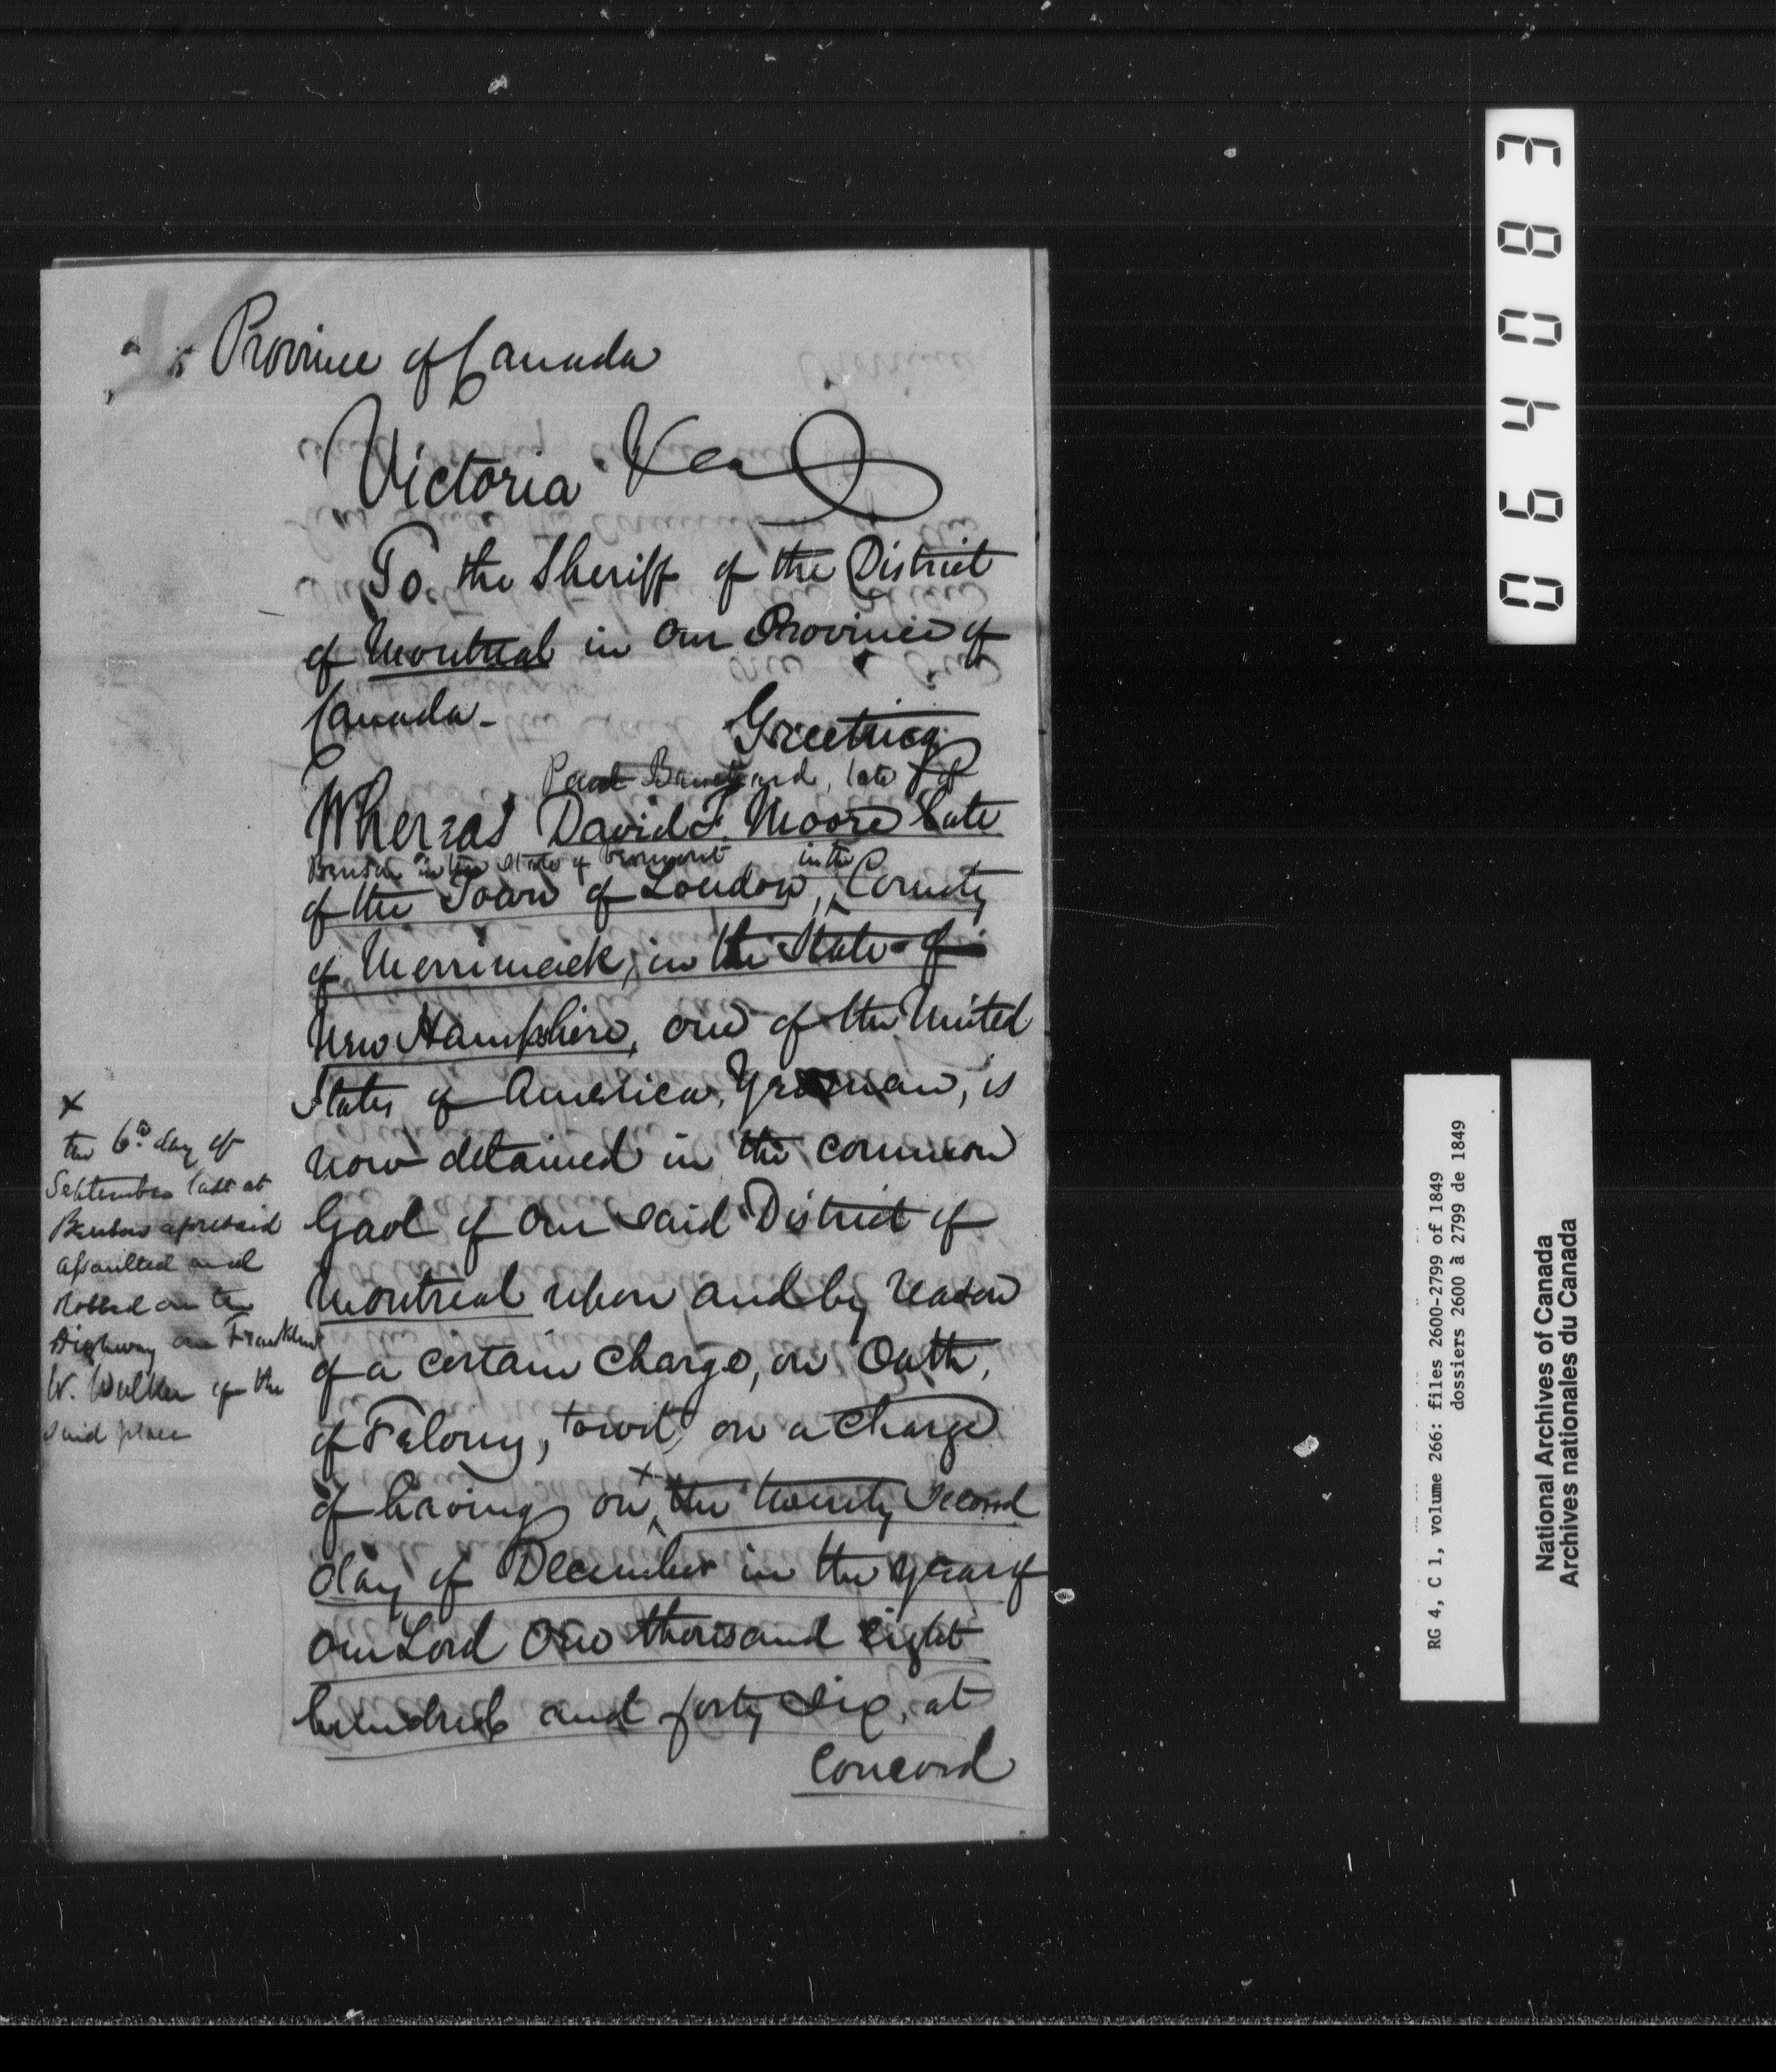 Province of Canada
Victoria &ca
To the Sheriff of the District
of Montreal in our Province of
Canada -
Greeting
late of
Whereas David F. Moore late
Benson in the State of Vermont in the
of the Town of Loudon, County
of Merrimack, in the State of
New Hampshire, one of the United
States of America, Yeoman, is
now detained in the common
Gaol of our said District of
Montreal upon and by reason
of a certain charge, on Oath,
of Felony, towit, on a charge
of having on x the twenty second
day of December in the year of
our Lord One thousand eight
hundred and forty six, at
Concord
x
the 6th day of
September last at
Benson aforesaid
assaulted and
robbed on the
Highway one Franklin
W. Walker of the
said place
064083
RG 4, C 1, volume 266: files 2600-2799 of 1849
dossiers 2600 à 2799 de 1849
National Archives of Canada
Archives nationales du Canada